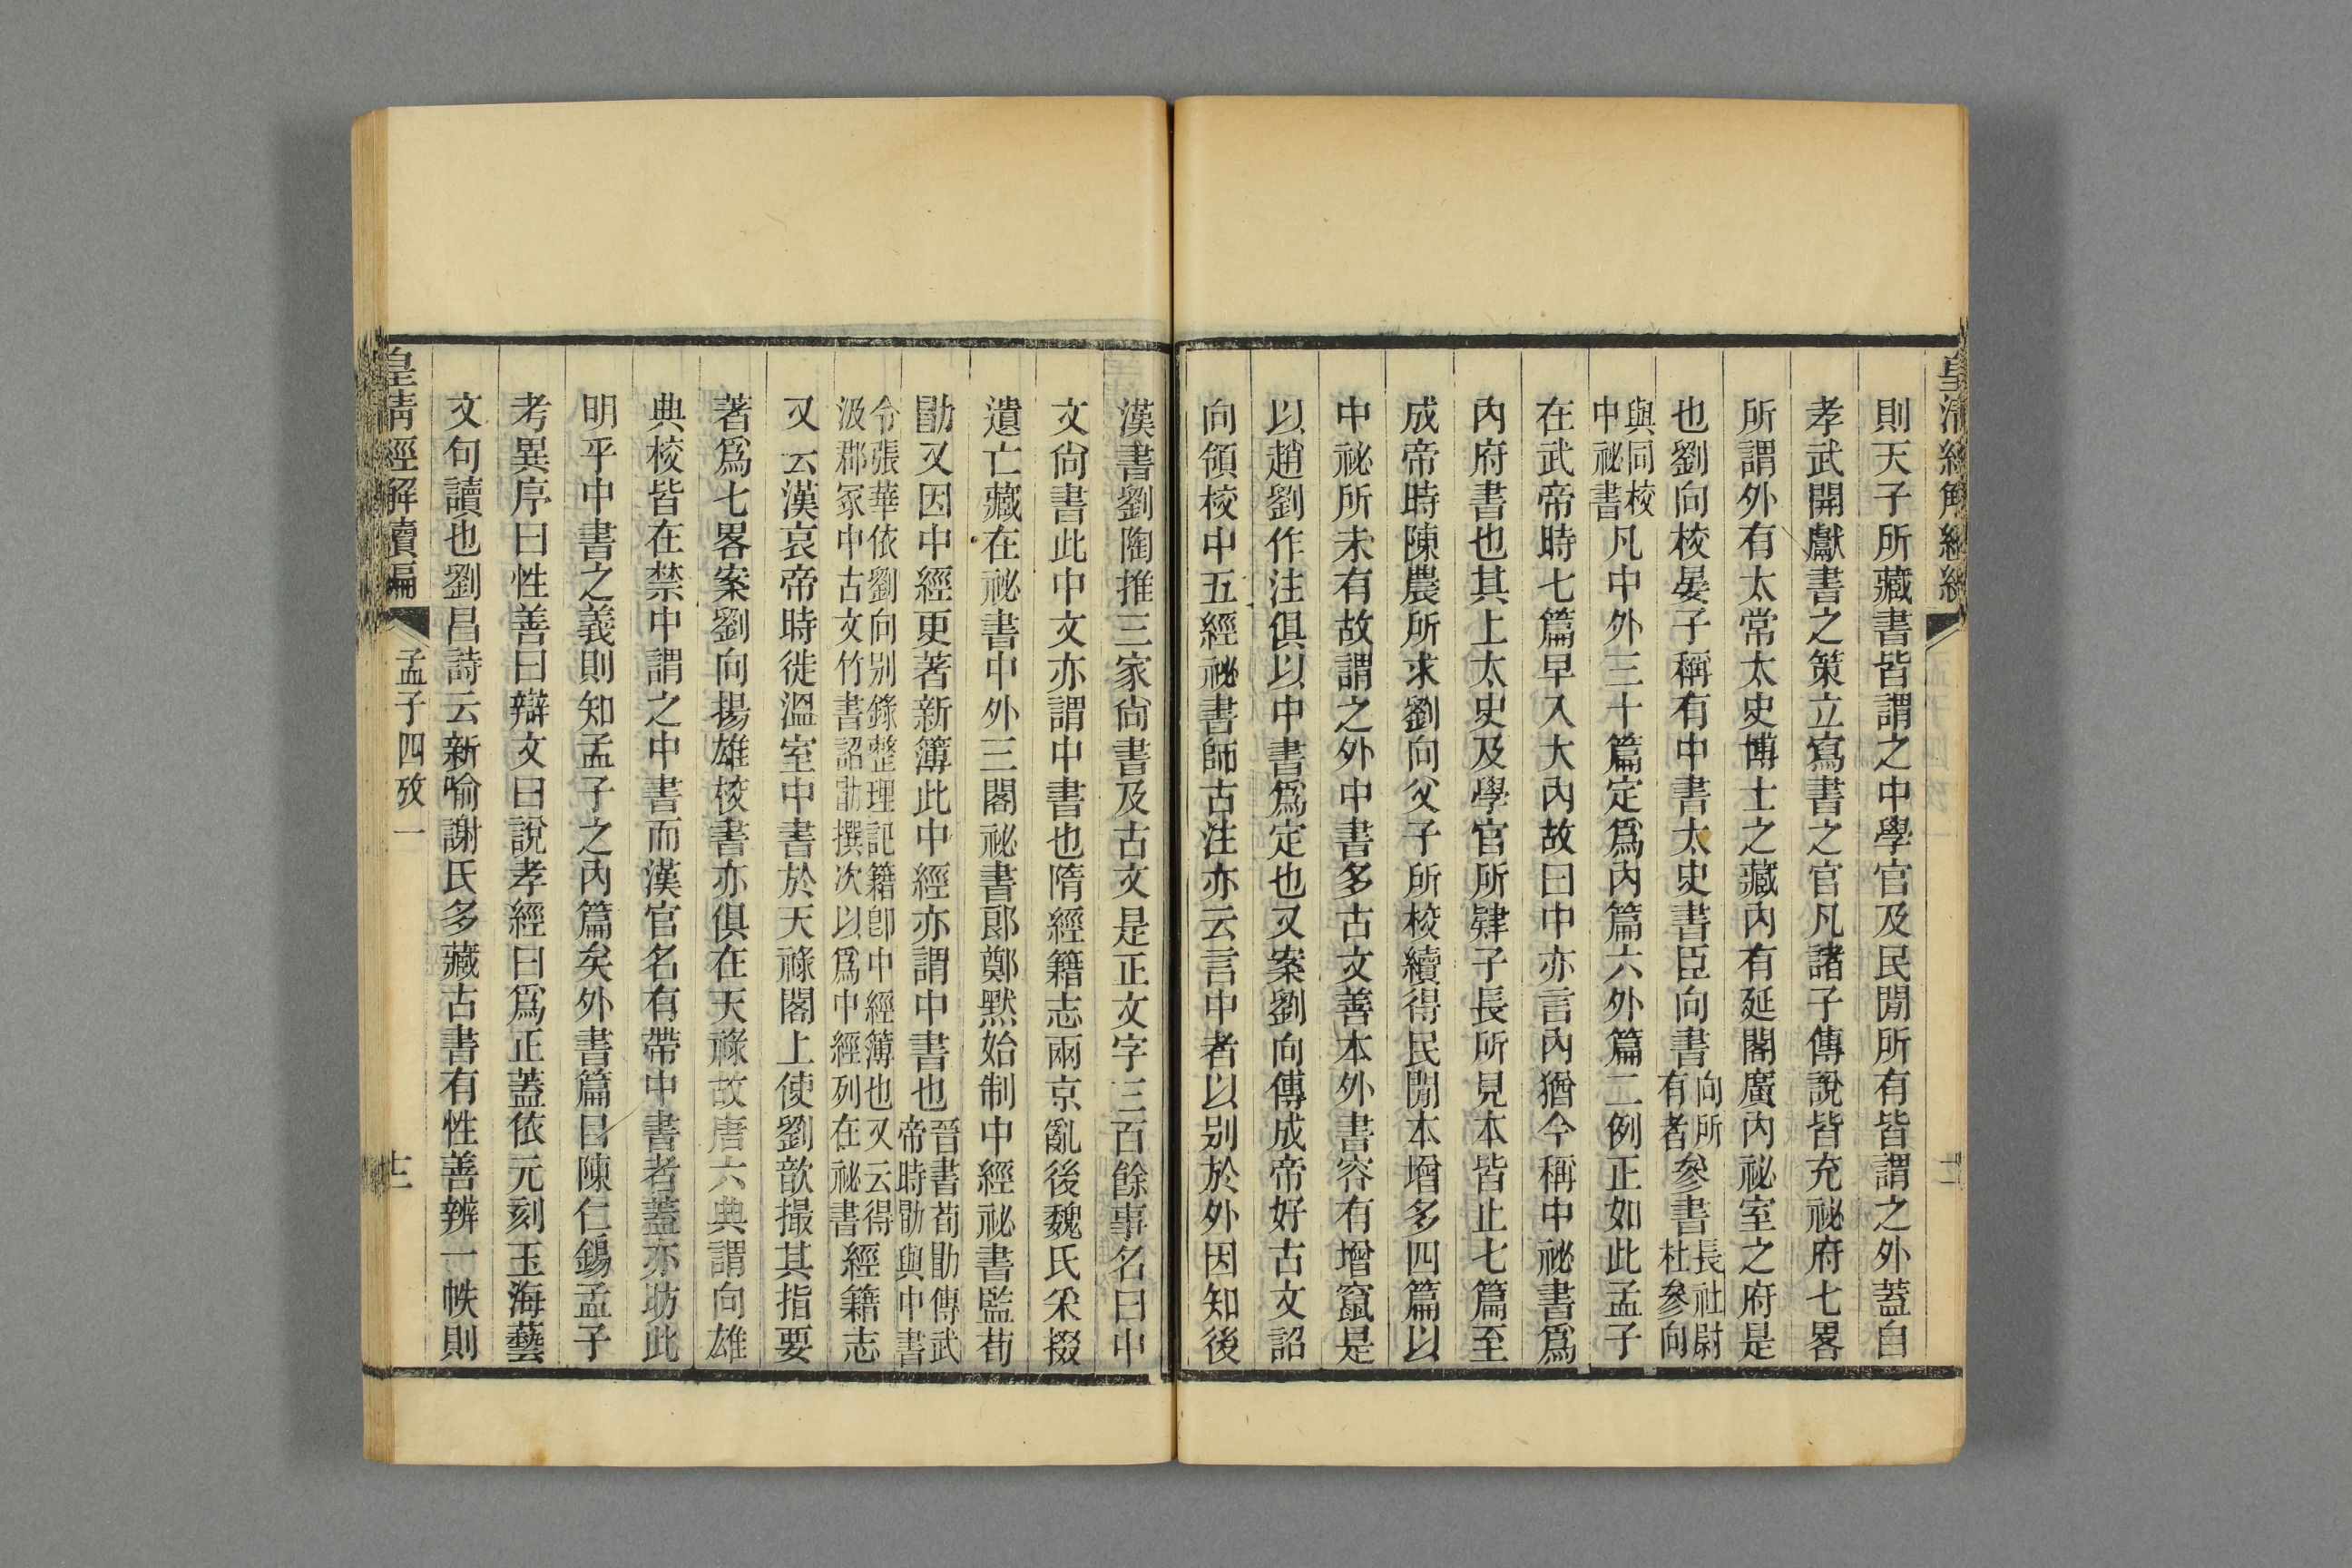 則天子所藏書皆謂之中學官及民閒所有皆謂之外蓋自
孝武開獻書之策立寫書之官凡諸子傳說皆充祕府七畧
所謂外有太常太史博士之藏內有延閣廣內祕室之府是
也劉向校晏子稱有中書太史書臣向書向所有者參書長社尉杜參向
與同校中祕書凡中外三十篇定爲內篇六外篇二例正如此孟子
在武帝時七篇早入大內故曰中亦言內猶今稱中祕書爲
內府書也其上太史及學官所肄子長所見本皆止七篇至
成帝時陳農所求劉向父子所校續得民閒本增多四篇以
中祕所未有故謂之外中書多古文善本外書容有增竄是
以趙劉作注俱以中書爲定也又案劉向傳成帝好古文詔
向領校中五經祕書師古注亦云言中者以别於外因知後
漢書劉陶推三家尚書及古文是正文字三百餘事名曰中
文尚書此中文亦謂中書也隋經籍志兩京亂後魏氏采掇
遺亡藏在祕書中外三閣祕書郞鄭默始制中經祕書監荀
勖又因中經更著新簿此中經亦謂中書也晉書荀勖傳武帝時勖與中書
令張華依劉向别錄整理記籍卽中經簿也又云得汲郡冢中古文竹書詔勖撰次以爲中經列在祕書經籍志
又云漢哀帝時徙溫室中書於天祿閣上使劉歆撮其指要
著爲七畧案劉向揚雄校書亦俱在天祿故唐六典謂向雄
典校皆在禁中謂之中書而漢官名有帶中書者蓋亦昉此
明乎中書之義則知孟子之內篇矣外書篇目陳仁錫孟子
考異序曰性善曰辯文曰說孝經曰爲正蓋依元刻玉海藝
文句讀也劉昌詩云新喻謝氏多藏古書有性善辨一帙則
皇清經解續編
孟子四攷一
十二